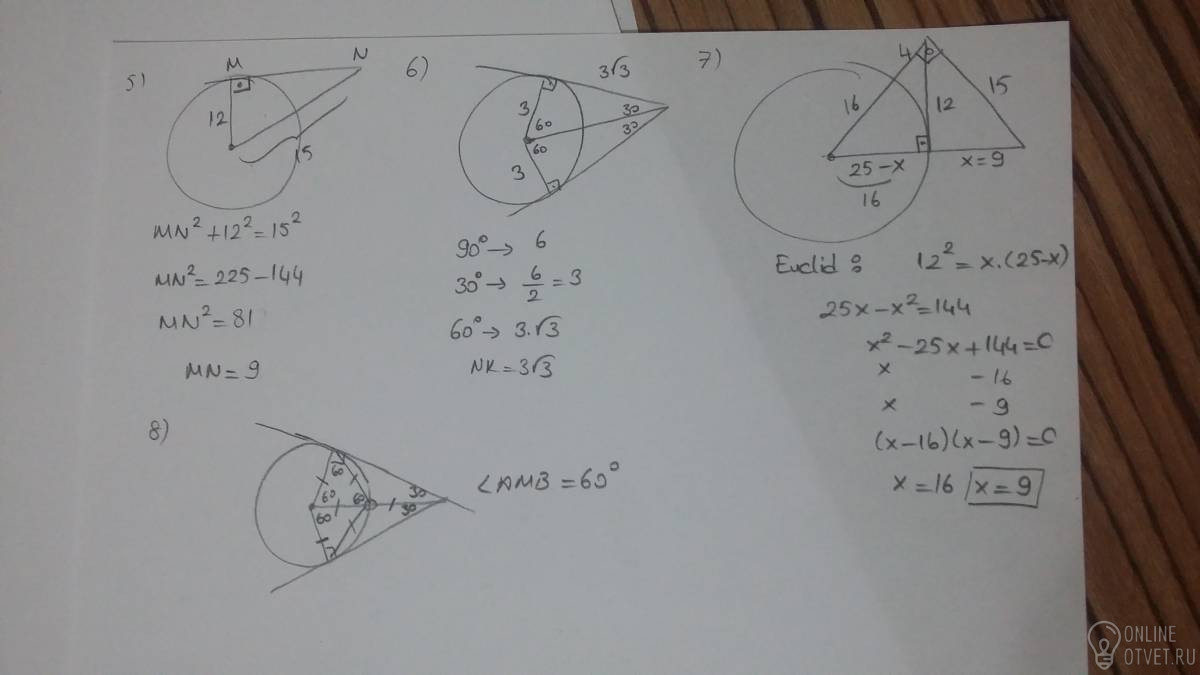 5)
M
N
12
15
MN²+12²=15²
MN²=225-144
MN²=81
MN=9
6)
3√3
3
60
60
3
30
30
90°→ 6
30°→ 6/2=3
60°→ 3.√3
NK=3√3
7)
4
16
12
15
25-x
16
x=9
Euclid: 12²=x.(25-x)
25x-x²=144
x²-25x+144=0
x -16
x -9
(x-16)(x-9)=0
x=16 x=9
8)
60
60
60
60
30
30
∠AMB=60°
ONLINE
OTVET.RU